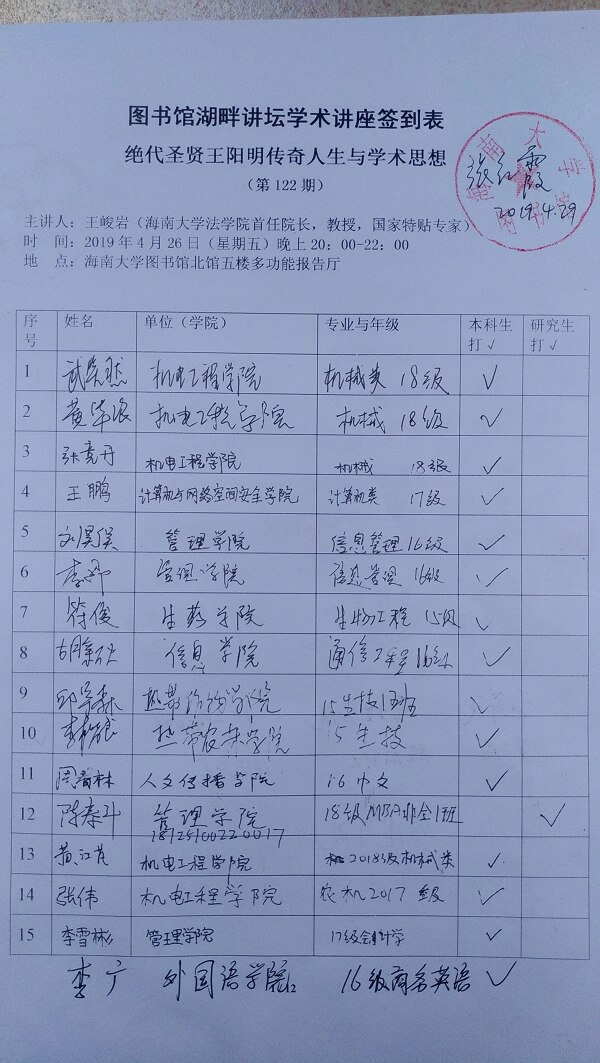 图书馆湖畔讲坛学术讲座签到表
绝代圣贤王阳明传奇人生与学术思想
（第 122 期）
张红霞
2019.4.29
主讲人：王峻岩（海南大学法学院首任院长，教授，国家特贴专家）
时 间：2019 年 4 月 26 日（星期五）晚上 20：00-22：00
地 点：海南大学图书馆北馆五楼多功能报告厅
序号 姓名 单位（学院） 专业与年级 本科生打√ 研究生打√
1 机电工程学院 机械类 18级 √
2 机电工程学院 机械 18级 √
3 张竞丹 机电工程学院 机械 18级 √
4 王鹏 计算机与网络空间安全学院 计算机类 17级 √
5 管理学院 信息管理16级 √
6 管理学院 信息管理 16级 √
7 符俊 生药学院 生物工程 15级 √
8 信息学院 通信工程16级 √
9 邱 15生技 班 √
10 热带农林学院 15生技 √
11 周 林 人文传播学院 16中文 √
12 陈泰斗 管理学院 18级MBA非全1班 √
18125100220017
13 黄江 机电工程学院 2018级机械类 √
14 张伟 机电工程学院 农机2017级 √
15 李雪彬 管理学院 17级会计学 √
李广 外国语学院 16级商务英语 √